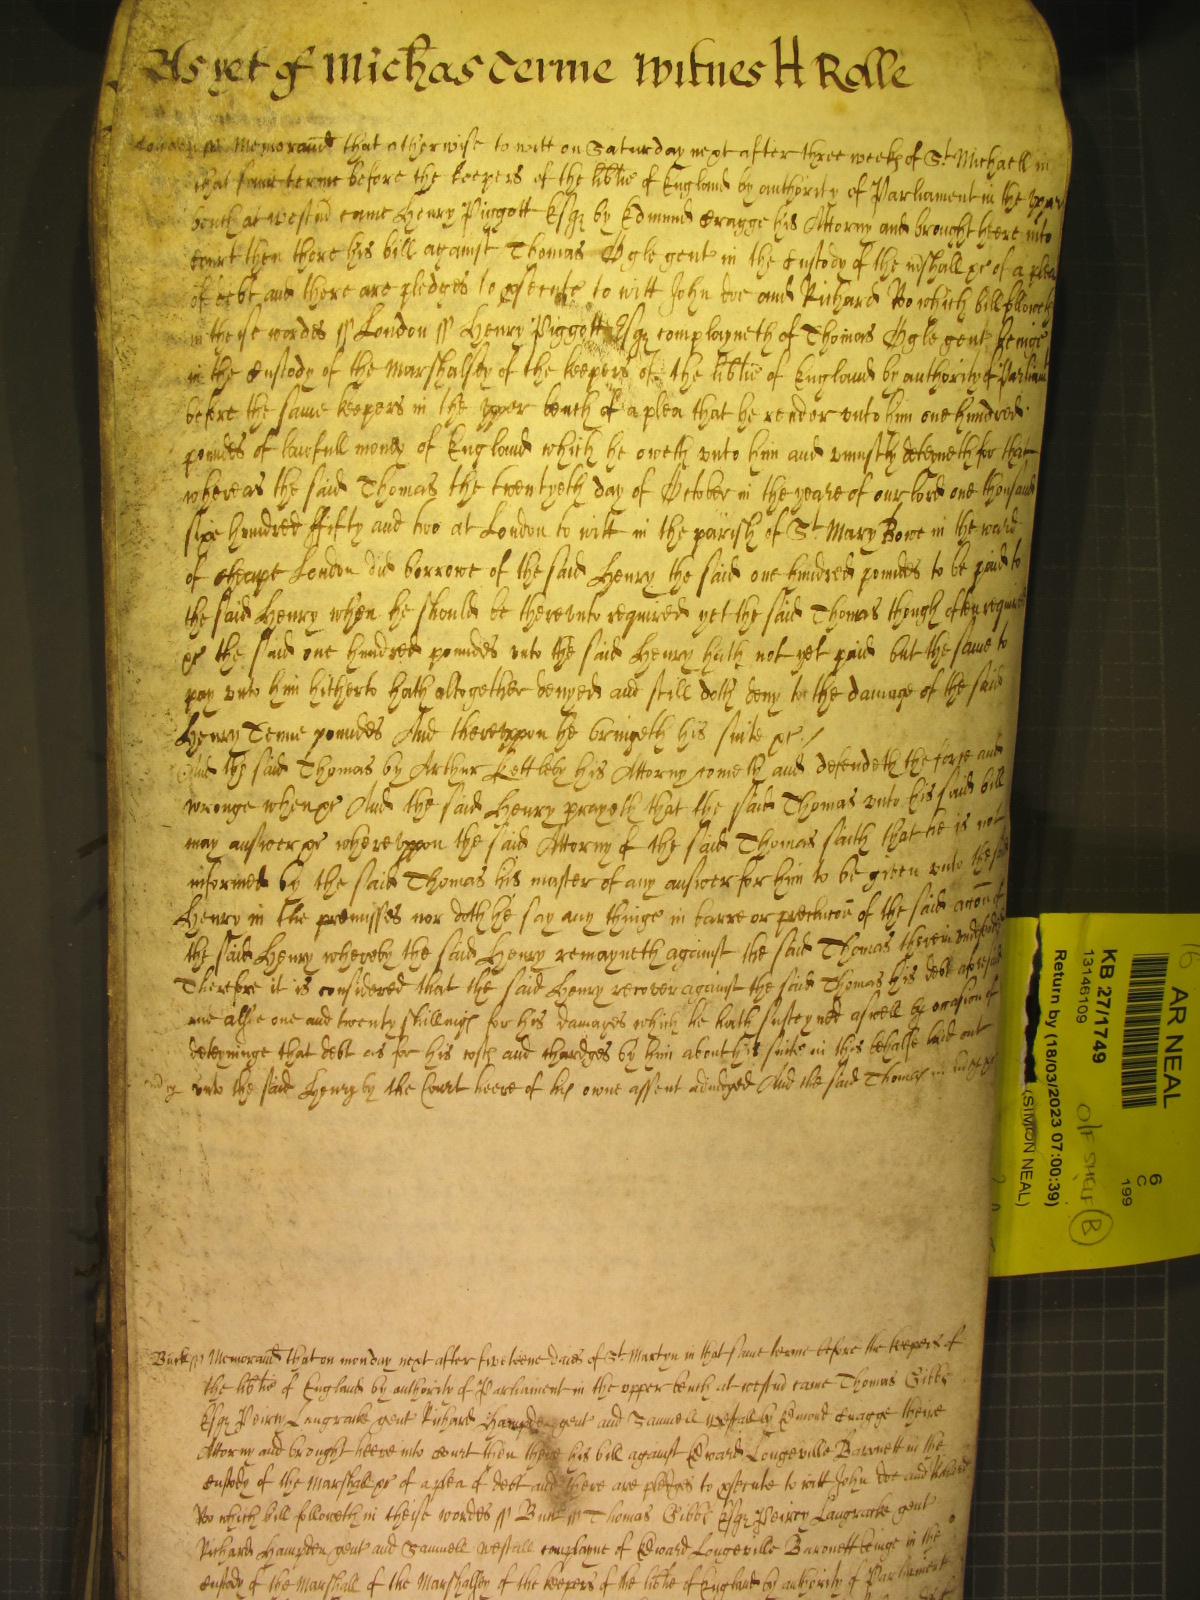 As yet of Michas Terme Witnes H Rolle
London ss Memorand that otherwise to witt on Saturday next after three weekes of St Michaell in
that same terme before the keepers of the libtie of England by authority of Parliament in the upper
bench at westm came Henry Piggott Esqr by Edmund Cragge his Attorny and brought heere into
court then there his bill against Thomas Ogle gent in the custody of the mshall &c of a plea
of debt and there are pledges to psecute to witt John doe and Richard Roo which bill followeth
in theise wordes ss London ss Henry Piggott Esqr complayneth of Thomas Ogle gent beinge
in the custody of the Marshalsey of the keepers of the libtie of England by authority of Parliamt
before the same keepers in the upper bench of a plea that he render unto him one hundred
poundes of lawfull money of England which he oweth unto him and uniustly deteyneth for that
whereas the said Thomas the twentyeth day of October in the yeare of our lord one thousand
sixe hundred ffifty and two at London to witt in the parish of St Mary Bowe in the ward
of cheape London did borrowe of the said Henry the said one hundred poundes to be paid to
the said Henry when he should be thereunto required yet the said Thomas though often required
&c the said one hundred poundes unto the said Henry hath not yet paid but the same to
pay unto him hitherto hath altogether denyed and still doth deny to the damage of the said
Henry Tenne poundes And thereuppon he bringeth his suite &c
And the said Thomas by Arthur Kettleby his Attorny cometh and defendeth the force and
wronge when &c And the said Henry prayeth that the said Thomas unto his said bill
may answer &c whereuppon the said Attorny of the said Thomas saith that he is not
informed by the said Thomas his master of any answer for him to be given unto the said
Henry in the premisses nor doth he say any thinge in barre or preclucon of the said accon of
the said Henry whereby the said Henry remayneth against the said Thomas therein undefended
Therefore it is considered that the said Henry recover against the said Thomas his debt aforesaid
and alsoe one and twenty shillings for his damages which he hath susteyned aswell by occasion of
deteyninge that debt as for his costs and chardges by him about his suite in this behalfe laid out
unto the said Henry by the Court heere of his owne assent adiudged And the said Thomas in mcy &c
Buck ss Memorand that on monday next after fiveteene daies of St Martyn in that same terme before the keepers of
the libtie of England by authority of Parliament in the upper bench at westm came Thomas Gibbs
Esqr Peircy Langracke gent Richard Hampden gent and Samuell Westall by Edmond Cragge theire
Attorny and brought heere into court then there his bill against Edward Longeville Baronett in the
custody of the Marshall &c of a plea of debt and there are pledges to psecute to witt John doe and Richard
Roo which bill followeth in theise wordes ss Buck ss Thomas Gibbs Esqr Peircy Langracke gent
Richard Hampden gent and Samuell Westall complayne of Edward Longeville Baronett beinge in the
custody of the Marshall of the Marshalsey of the keepers of the libtie of England by authority of Parliament
AR NEAL
6
C
199
KB 27/1749
13146109
O/F SHELF B
Return by (18/03/2023 07:00:39)
(SIMON NEAL)